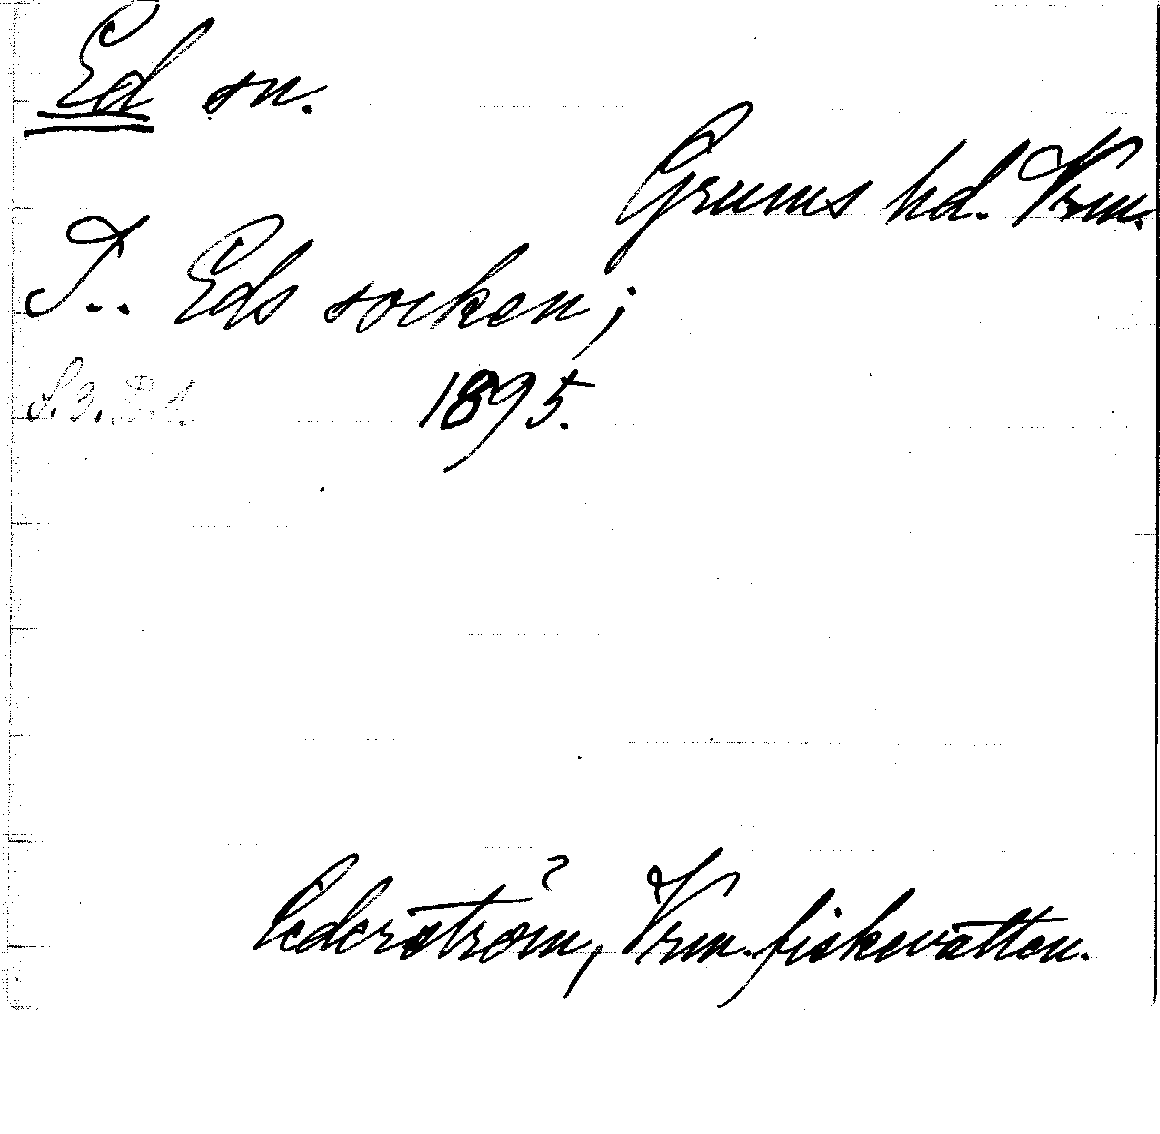 Ed sn.
Grums hd. Vrm.
I.. Eds socken;
1895.
Cederström, Vrm. fiskevatten.